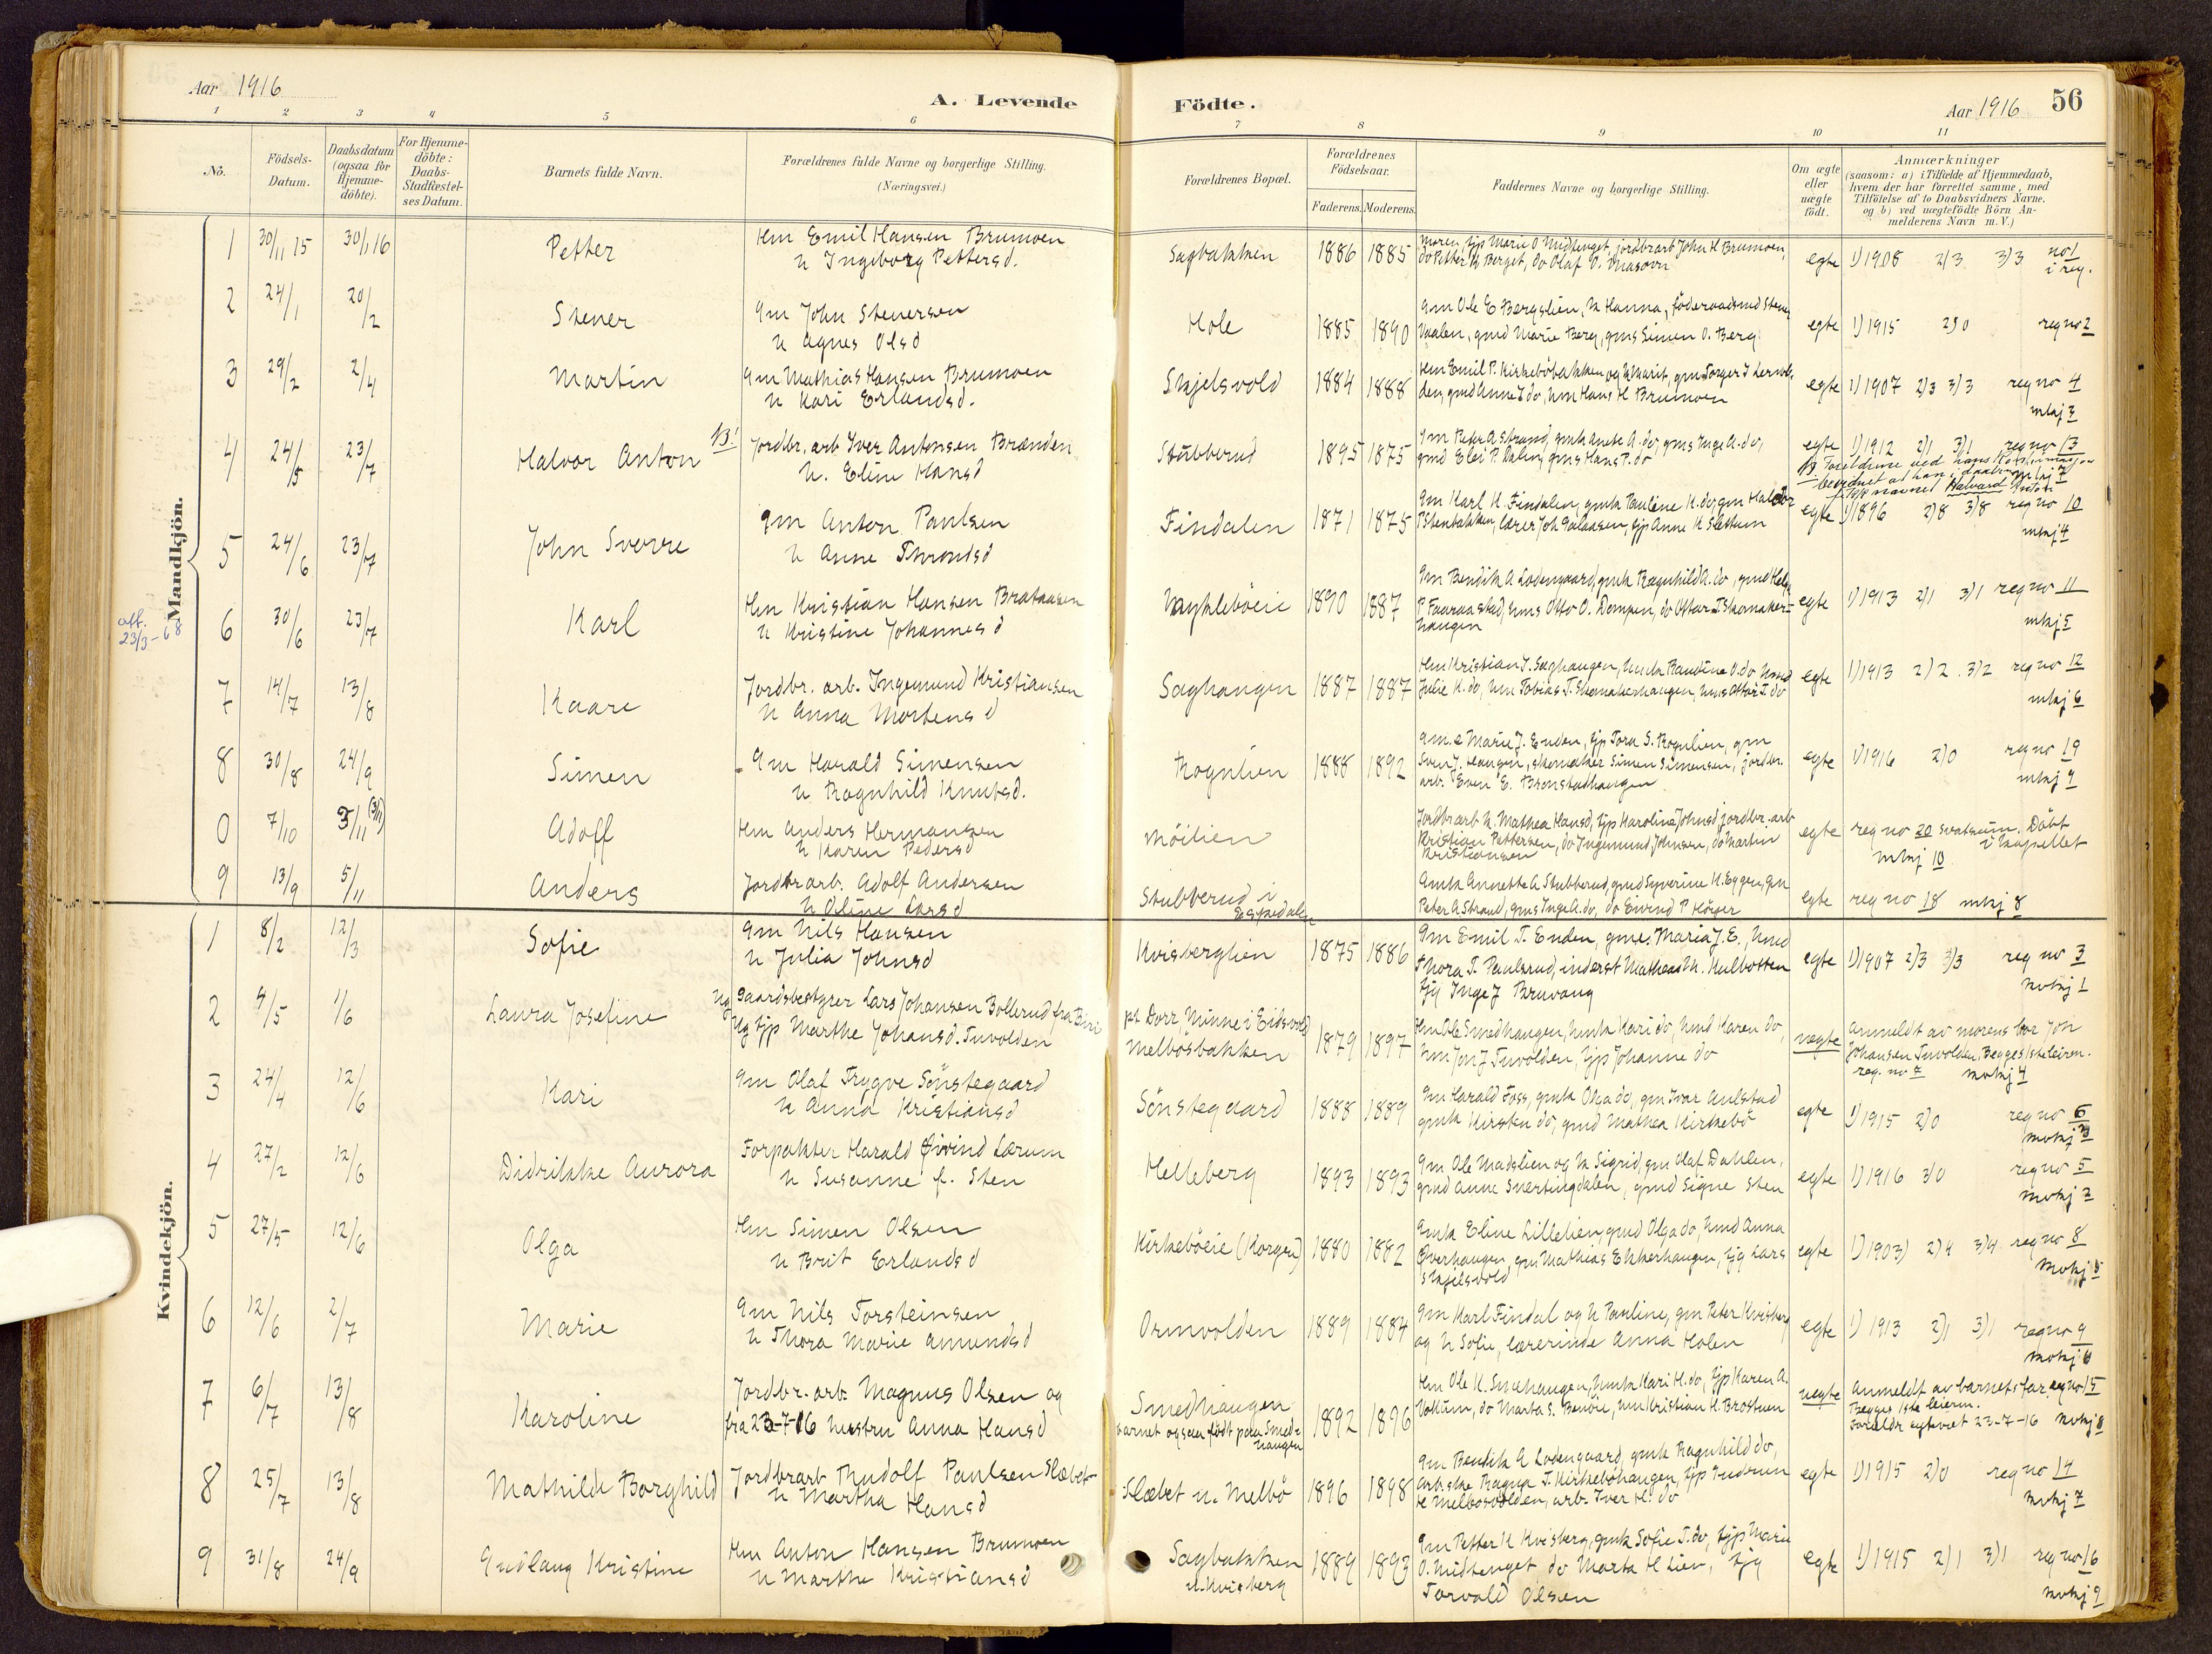 Aar 1916
A. Levende
Födte.
Aar 1916
56
1 2 3 4 5 6 7 8 9 10 11
No.
Födsels-
Datum.
Daabsdatum
(ogsaa for
Hjemme-
döbte).
For Hjemme-
döbte:
Daabs-
Stadfæstel-
ses Datum.
Barnets fulde Navn.
Forældrenes fulde Navne og borgerlige Stilling.
(Næringsvei.)
Forældrenes Bopæl.
Forældrenes
Födselsaar.
Faderens. Moderens.
Faddernes Navne og borgerlige Stilling.
Om ægte
eller
uægte
födt.
Anmærkninger
(saasom: a) i Tilfælde af Hjemmedaab,
hvem der har forrettet samme, med
Tilföielse af to Daabsvidners Navne.
og b) ved uægtefödte Börn An-
melderens Navn m. V.)
Mandkjön.
1 30/11 15 30/1 16 Petter
Hm Emil Hansen Brumoen
h Ingeborg Pettersd.
Sagbakken 1886 1885
Moren, tjp Marie O Midtenget, jordbrarb John H Brumoen,
do Petter H Berget, do Olaf O.
egte 1) 1908 2) 3 3) 3 no 1
i reg.
2 24/1 20/2 Stener
Gm John Stenersen
h Agnes Olsd
Hole 1885 1890
Gm Ole E Bergslien, h Hanna, föderaadsmd Stener
gmd Marie Berg, gms Simen O. Berg
egte 1) 1915 2) 0 reg no 2
3 29/2 2/4 Martin
Gm Mathias Hansen Brumoen
h Kari Erlandsd.
Skjelsvold 1884 1888
Hm Emil P. Kirkeböbakken og h Marit, gm Torger J
gmd Anne J do, hm Hans H Brumoen
egte 1) 1907 2) 3 3) 3 reg no 4
mkj 3
4 24/5 23/7 Halvor Anton NB!
Jordbr. arb Iver Antonsen Brænden
h. Eline Hansd
Stubberud 1895 1875
Gm Peter A Strand, gmk Anette A. do, gms Inge A. do,
gmd Elei P. Dalen, gms Hans P. do
egte 1) 1912 2) 1 3) 1 reg no 13
NB. Foreldrene ved hans Konfirmasjon
navnet Halvard Anton
5 24/6 23/7 John Sverre
Gm Anton Paulsen
h Anne Thronds d
Findalen 1871 1875
Gm Karl H. Findalen, gmk Pauline K. do, gm Haldor
P Stenbakken, lærer Joh Galaasen, tjp Anne K Slettum
egte 1) 1896 2) 8 3) 8 reg no 10
mkj 4
off.
23/3-68
6 30/6 23/7 Karl
Hm Kristian Hansen Brataasen
h Kristine Johannesd
1890 1887
Gm Bendik A Lodengaard, gmk Ragnhild A. do, gmd Helga
P. Faaraastad, hms Otto O. Dompen, do Ottar T Skomaker-
haugen
egte 1) 1913 2) 1 3) 1 reg no 11
mkj 5
7 14/7 13/8 Kaare
Jordbr. arb. Ingemund Kristiansen
h Anna Mortensd
Saghaugen 1887 1887
Hm Kristian J. Saghaugen, hmk Randine O. do hmd
Julie K. do, hm Tobias T. Skomakerhaugen, hms Ottar T. do
egte 1) 1913 2) 2 3) 2 reg no 12
mkj 6
8 30/8 24/9 Simen
Gm Harald Simensen
h Ragnhild Knutsd.
Rognlien 1888 1892
gm.e Marie J. Enden, tjp Tora S. Rognlien, gm
Sven J. Haugen, skomaker Simen Simensen, jordbr.
arb. Even E. Bronstadhaugen
egte 1) 1916 2) 0 reg no 19
mkj 9
0 7/10 3/11 (3/11) Adolf
Hm Anders Hermansen
h Karen Pedersd
Möilien
Jordbrarb h. Mathea Hansd, tjp Karoline Johnsd, jordbr. arb
Kristian Pettersen, do Ingemund Johnsen, do Martin
Kristiansen
egte reg no 20 Svatsum. Döbt
mkj 10 i kapellet
9 13/9 5/11 Anders
Jordbrarb. Adolf Andersen
h Oline Larsd
Stubberud i
Espedalen
Gmk Annette A Stubberud, gmd Syverine H. Eggen, gm
Peter A Strand, gms Inge A. do, do Eivind P Hörger
egte reg no 18 mkj 8
Kvindekjön.
1 8/2 12/3 Sofie
Gm Nils Hansen
h Julia Johnsd
Kvisberglien 1875 1886
Gm Emil T. Enden, gme. Maria J. E., hmd
Thora T. Paulsrud, inderst Mathias M. Kulbotten
tjg Inge J Bruvang
egte 1) 1907 2) 3 3) 3 reg no 3
kvkj 1
2 4/5 1/6 Laura Josefine
Ug Gaardsbestyrer Lars Johansen Bollerud fra Biri
Ug tjp Marthe Johansd. Tuvolden
pt Dorr, Minne i Eidsvold
Melbösbakken 1879 1897
Hm Ole Smedhaugen, hmk Kari do, hmd Karen do,
hm Jon J Tuvolden, tjp Johanne do
uegte Anmeldt av morens bor Jon
Johansen Tuvolden. Begges 1ste leierm.
reg. no 7 kvkj 4
3 24/4 12/6 Kari
Gm Olaf Trygve Sönstegaard
h Anna Kristiansd
Sönstegaard 1888 1889
Gm Harald Foss, gmk Olga do, gm Ivar Aulstad
gmk Kirsten do, gmd Mathea Kirkebö
egte 1) 1915 2) 0 reg no 6
kvkj 3
4 27/2 12/6 Didrikke Aurora
Forpakter Harald Øivind Lærum
h Susanne f. Sten
Helleberg 1893 1893
Gm Ole Madslien og h Sigrid, gm Olaf Dahlen,
gmd Anne Svertingdalen, gmd Signe Sten
egte 1) 1916 3) 0 reg no 5
kvkj 2
5 27/5 12/6 Olga
Hm Simen Olsen
h Brit Erlandsd
Kirkeböeie (Korgen) 1880 1882
Gmk Eline Lillelien, gmd Olga do, hmd Anna
Överhaugen, gm Mathias Ekkerhaugen, tjg Lars
Skjelsvold
egte 1) 1903) 2) 4 3) 4 reg no 8
kvkj 5
6 12/6 2/7 Marie
Gm Nils Torsteinsen
h Thora Marie Amundsd
Ormvolden 1889 1884
Gm Karl Findal og h Pauline, gm Peter Kvisberg
og h Sofie, lærerinde Anna Holen
egte 1) 1913 2) 1 3) 1 reg no 9
kvkj 6
7 6/7 13/8 Karoline
Jordbr. arb. Magnus Olsen og
fra 23-7-16 hustru Anna Hansd
Smedhaugen
barnet ogsaa födt paa Smed-
haugen 1892 1896
Hm Ole K. Smedhaugen, hmk Kari H. do, tjp Karen A.
do Marta S. Benöie, hm Kristian H. Brostuen
uegte Anmeldt av barnets far. reg no 15
Begges 1ste leierm.
Foreldr egteviet 23-7-16 kvkj 8
8 25/7 13/8 Mathilde Borghild
Jordbrarb Thudolf Paulsen Slæbet
h Martha Hansd
Slæbet u. Melbö 1896 1898
Gm Bendik A Lodengaard, gmk Ragnhild do,
arb.ske Ragna T. Kirkeböhaugen, tjp Gudrun
H Melbösvolden, arb. Iver H. do
egte 1) 1915 2) 0 reg no 14
kvkj 7
9 31/8 24/9 Gudlaug Kristine
Hm Anton Hansen Brumoen
h Marthe Kristiansd
Sagbakken
u. Kvisberg 1889 1893
Gm Petter K Kvisberg, gmk Sofie T. do, tjp Marie
O. Midtenget, do Marta H Lien, tjg
Torvald Olsen
egte 1) 1915 2) 1 3) 1 reg no 16
kvkj 9